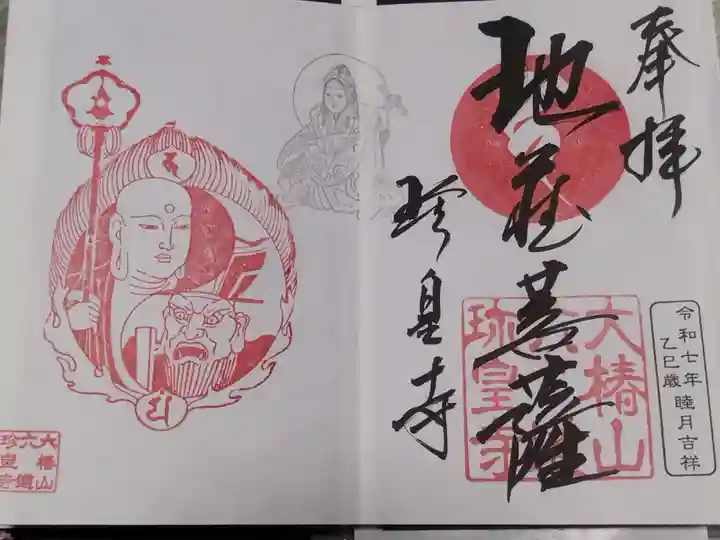 奉拝
地蔵菩薩
珍皇寺
大椿山
六道
珍皇寺
令和七年睦月吉祥
乙巳歳
大椿山
六道
珍皇寺